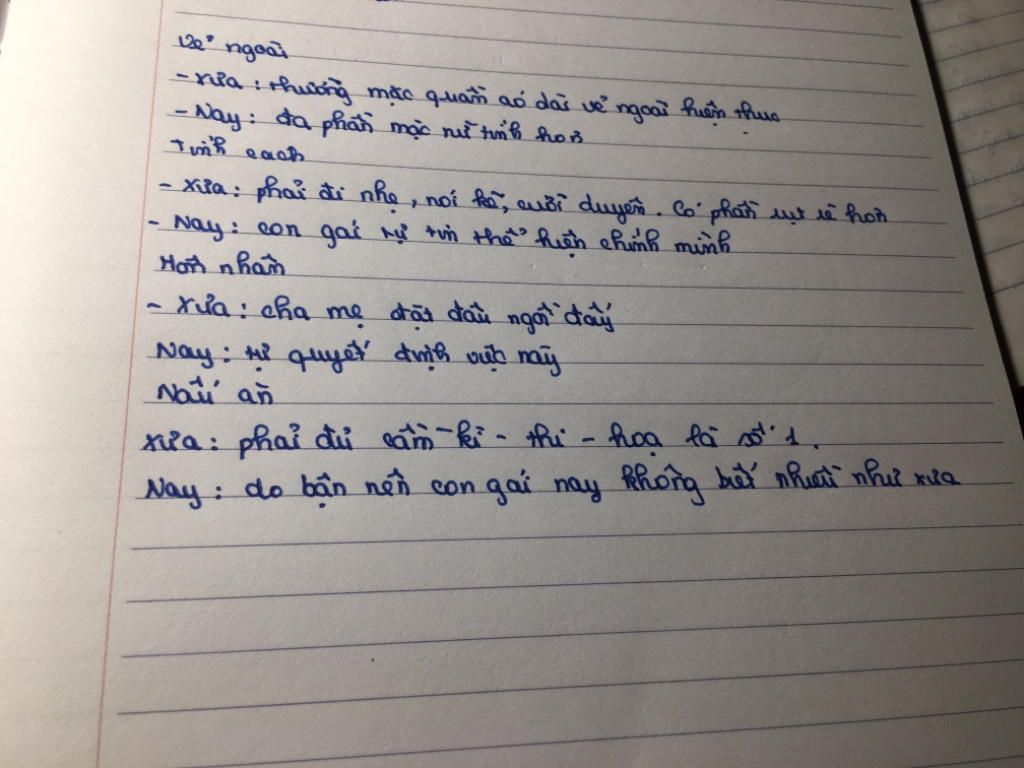 Vẻ ngoài
- Xưa : thường mặc quần aó dài vẻ ngoài hiện thục
- Nay : đa phần mặc nữ tính hơn
Tính cach
- Xưa : phải đi nhẹ , nói khẽ, cười duyên . Có phần rụt rè hơn
- Nay : con gái tự tin thể hiện chính mình
Hôn nhân
- Xưa : cha mẹ đặt đâu ngồi đấy
Nay : tự quyết định việc này
Nấu ăn
Xưa : phải đủ cầm - kì - thi - hoạ là số 1 .
Nay : do bận nên con gái nay không biết nhiều như xưa